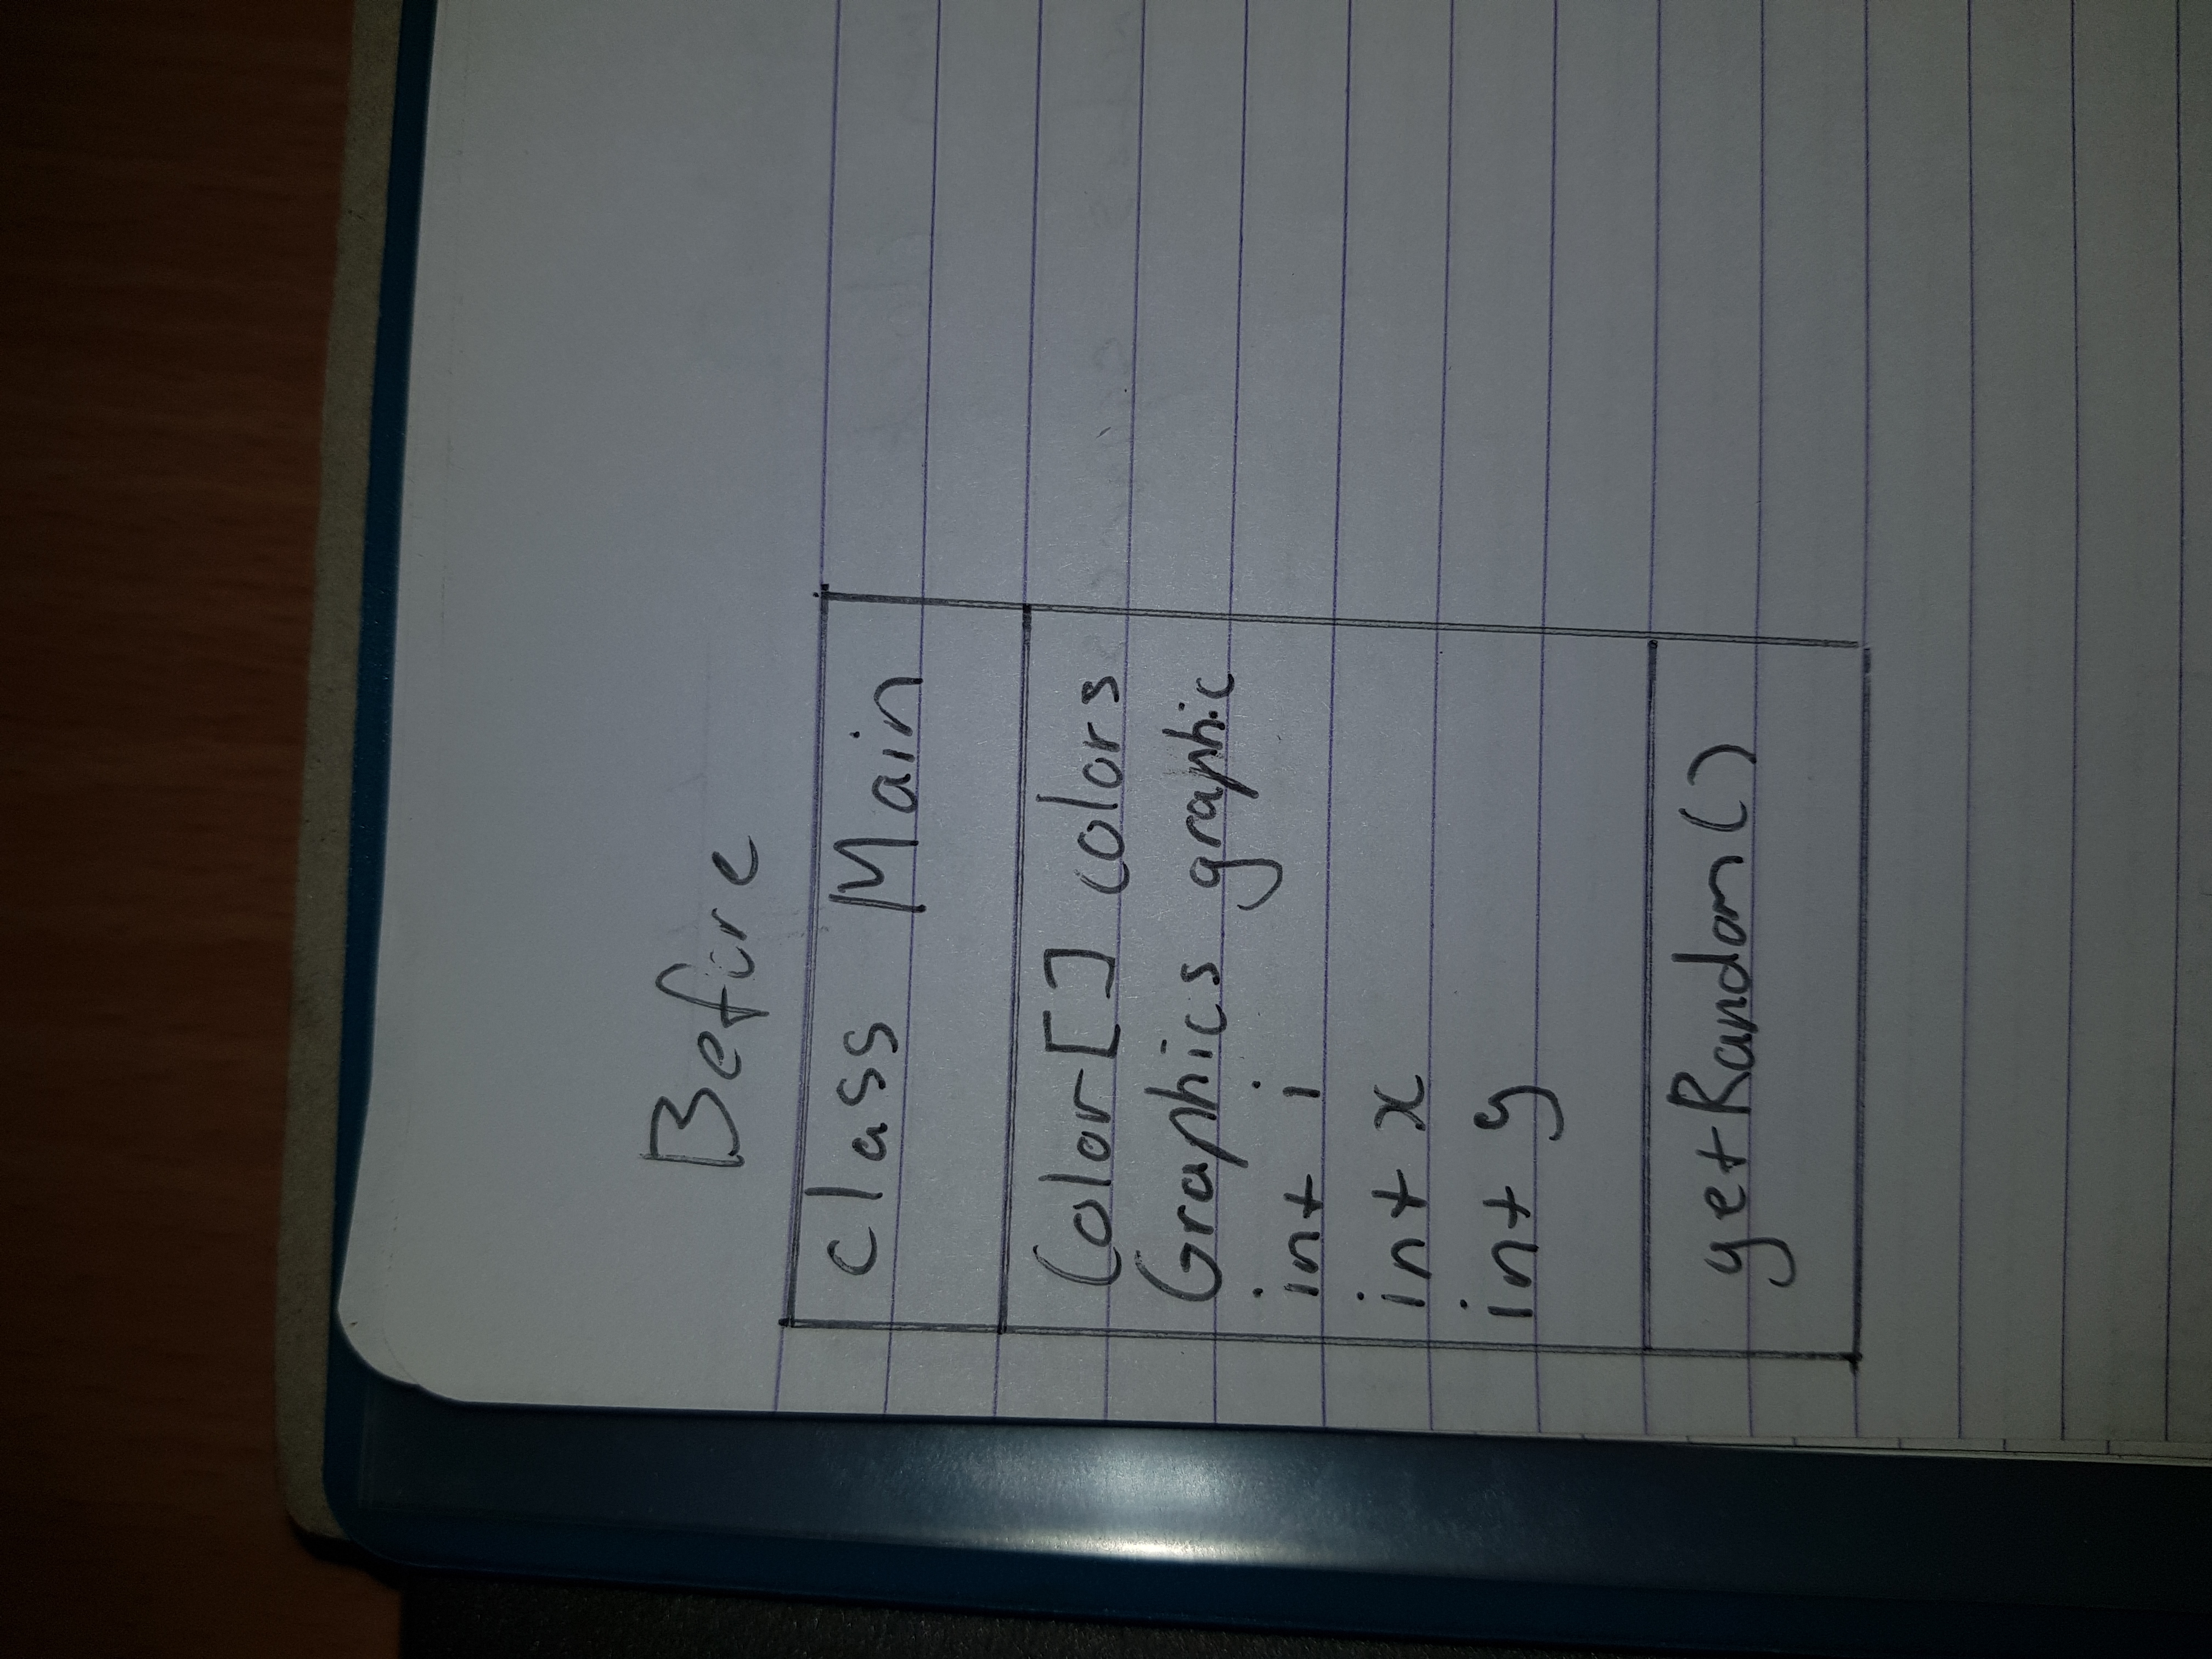 Before
class Main
Color[] colors
Graphics graphic
int i
int x
int y
getRandom()